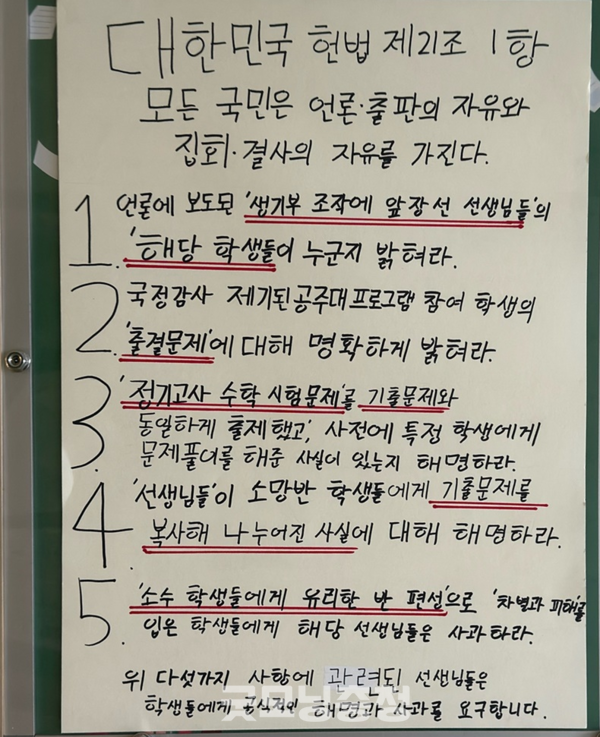 대한민국 헌법 제21조 1항
모든 국민은 언론·출판의 자유와
집회·결사의 자유를 가진다.
1. 언론에 보도된 '생기부 조작에 앞장선 선생님들'의
'해당 학생들'이 누군지 밝혀라.
2. 국정감사 제기된 공주대프로그램 참여 학생의
'출결문제'에 대해 명확하게 밝혀라.
3. '정기고사 수학 시험문제'를 기출문제와
동일하게 출제했고', 사전에 특정 학생에게
문제풀이를 해준 사실이 있는지 해명하라.
4. '선생님들'이 소망반 학생들에게 기출문제를
복사해 나누어진 사실에 대해 해명하라.
5. '소수 학생들에게 유리한 반 편성'으로 '차별과 피해'를
입은 학생들에게 해당 선생님들은 사과하라.
위 다섯가지 사항에 관련된 선생님들은
학생들에게 공식적인 해명과 사과를 요구합니다.
굿모닝충청